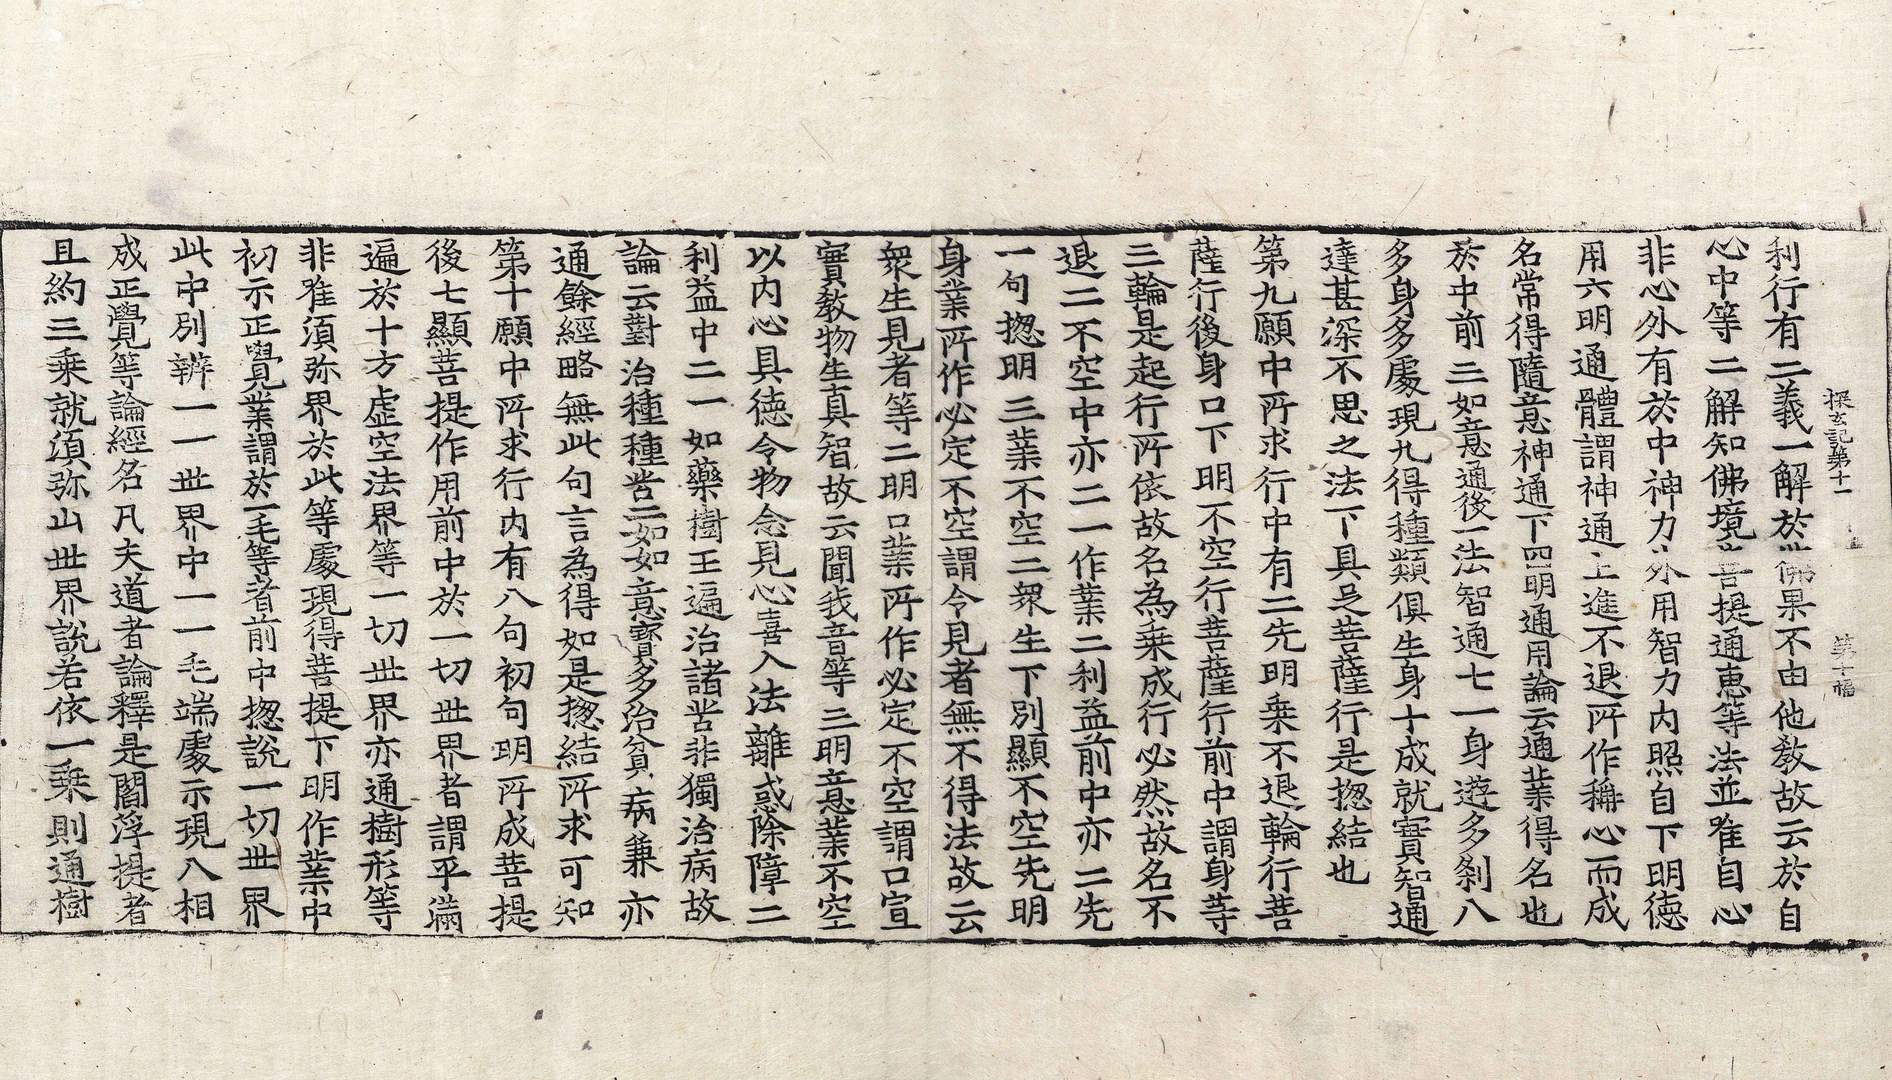 利行有二義一解於世佛果不由他教故云於自
探玄記第十一　第十幅
心中等二解知佛境菩提通恵等法並唯自心
非心外有於中神力外用智力内照自下明徳
用六明通體謂神通上進不退所作稱心而成
名常得隨意神通下四明通用論云通業得名也
於中前三如意通後一法智通七一身遊多剎八
多身多處現九得種類俱生身十成就實智通
達甚深不思之法下具足菩薩行是揔結也
第九願中所求行中有二先明乗不退輪行菩
薩行後身口下明不空行菩薩行前中謂身等
三輪是起行所依故名為乗成行必然故名不
退二不空中亦二一作業二利益前中亦二先
一句揔明三業不空二衆生下別顯不空先明
身業所作必定不空謂令見者無不得法故云
衆生見者等二明口業所作必定不空謂口宣
實教物生真智故云聞我音等三明意業不空
以内心具徳令物念見心喜入法離惑除障二
利益中二一如藥樹王遍治諸苦非獨治病故
論云對治種種苦二如如意寳多治貧病兼亦
通餘經略無此句言為得如是揔結所求可知
第十願中所求行内有八句初句明所成菩提
後七顯菩提作用前中於一切世界者謂平滿
遍於十方虛空法界等一切世界亦通樹形等
非唯須弥界於此等處現得菩提下明作業中
初示正覺業謂於一毛等者前中揔說一切世界
此中別辨一一世界中一一毛端處示現八相
成正覺等論經名凡夫道者論釋是閻浮提者
且約三乗就須弥山世界說若依一乗則通樹